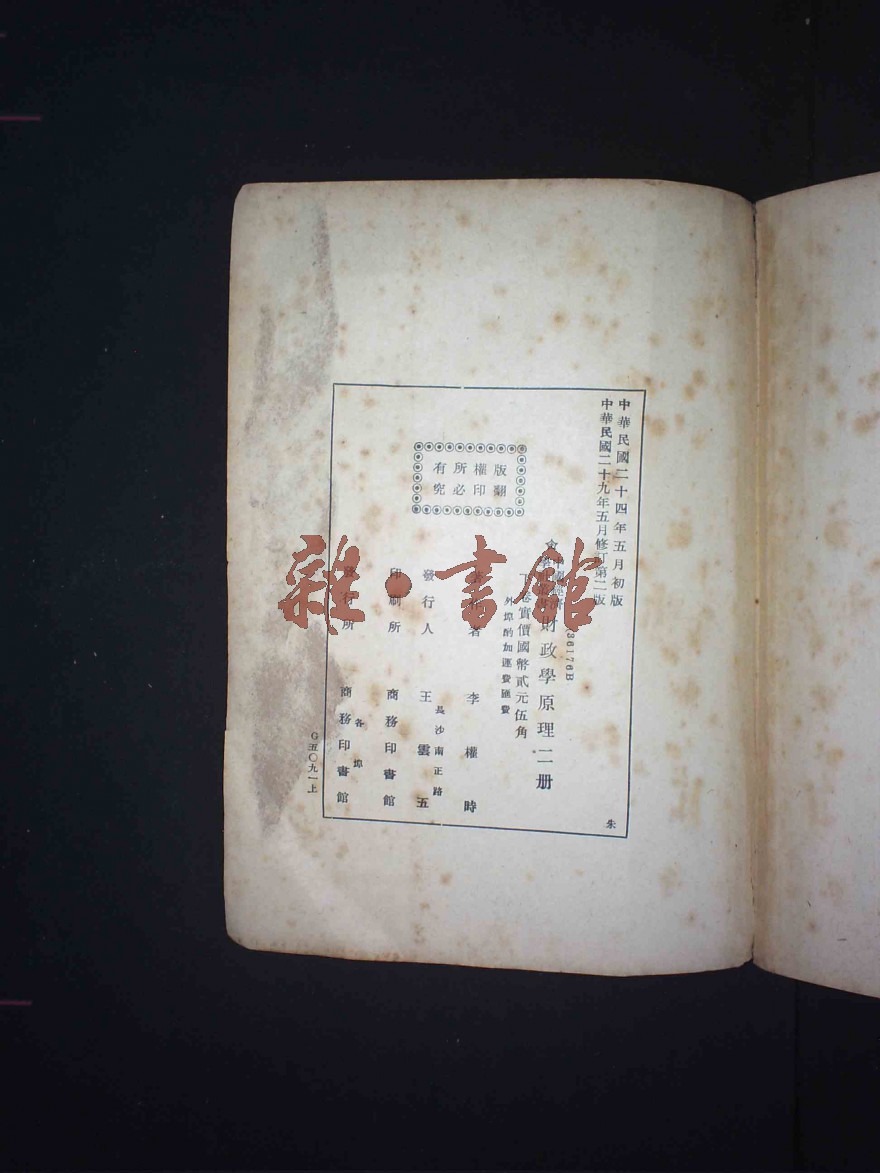 中華民國二十四年五月初版
中華民國二十九年五月修訂第二版
36176B
財政學原理二册
卷實價國幣貳元伍角
外埠酌加運費匯費
版權所有
翻印必究
者 李權時
發行人 王雲五
長沙南正路
印刷所 商務印書館
發行所 商務印書館
各埠
G五〇九一上
朱
雜·書館